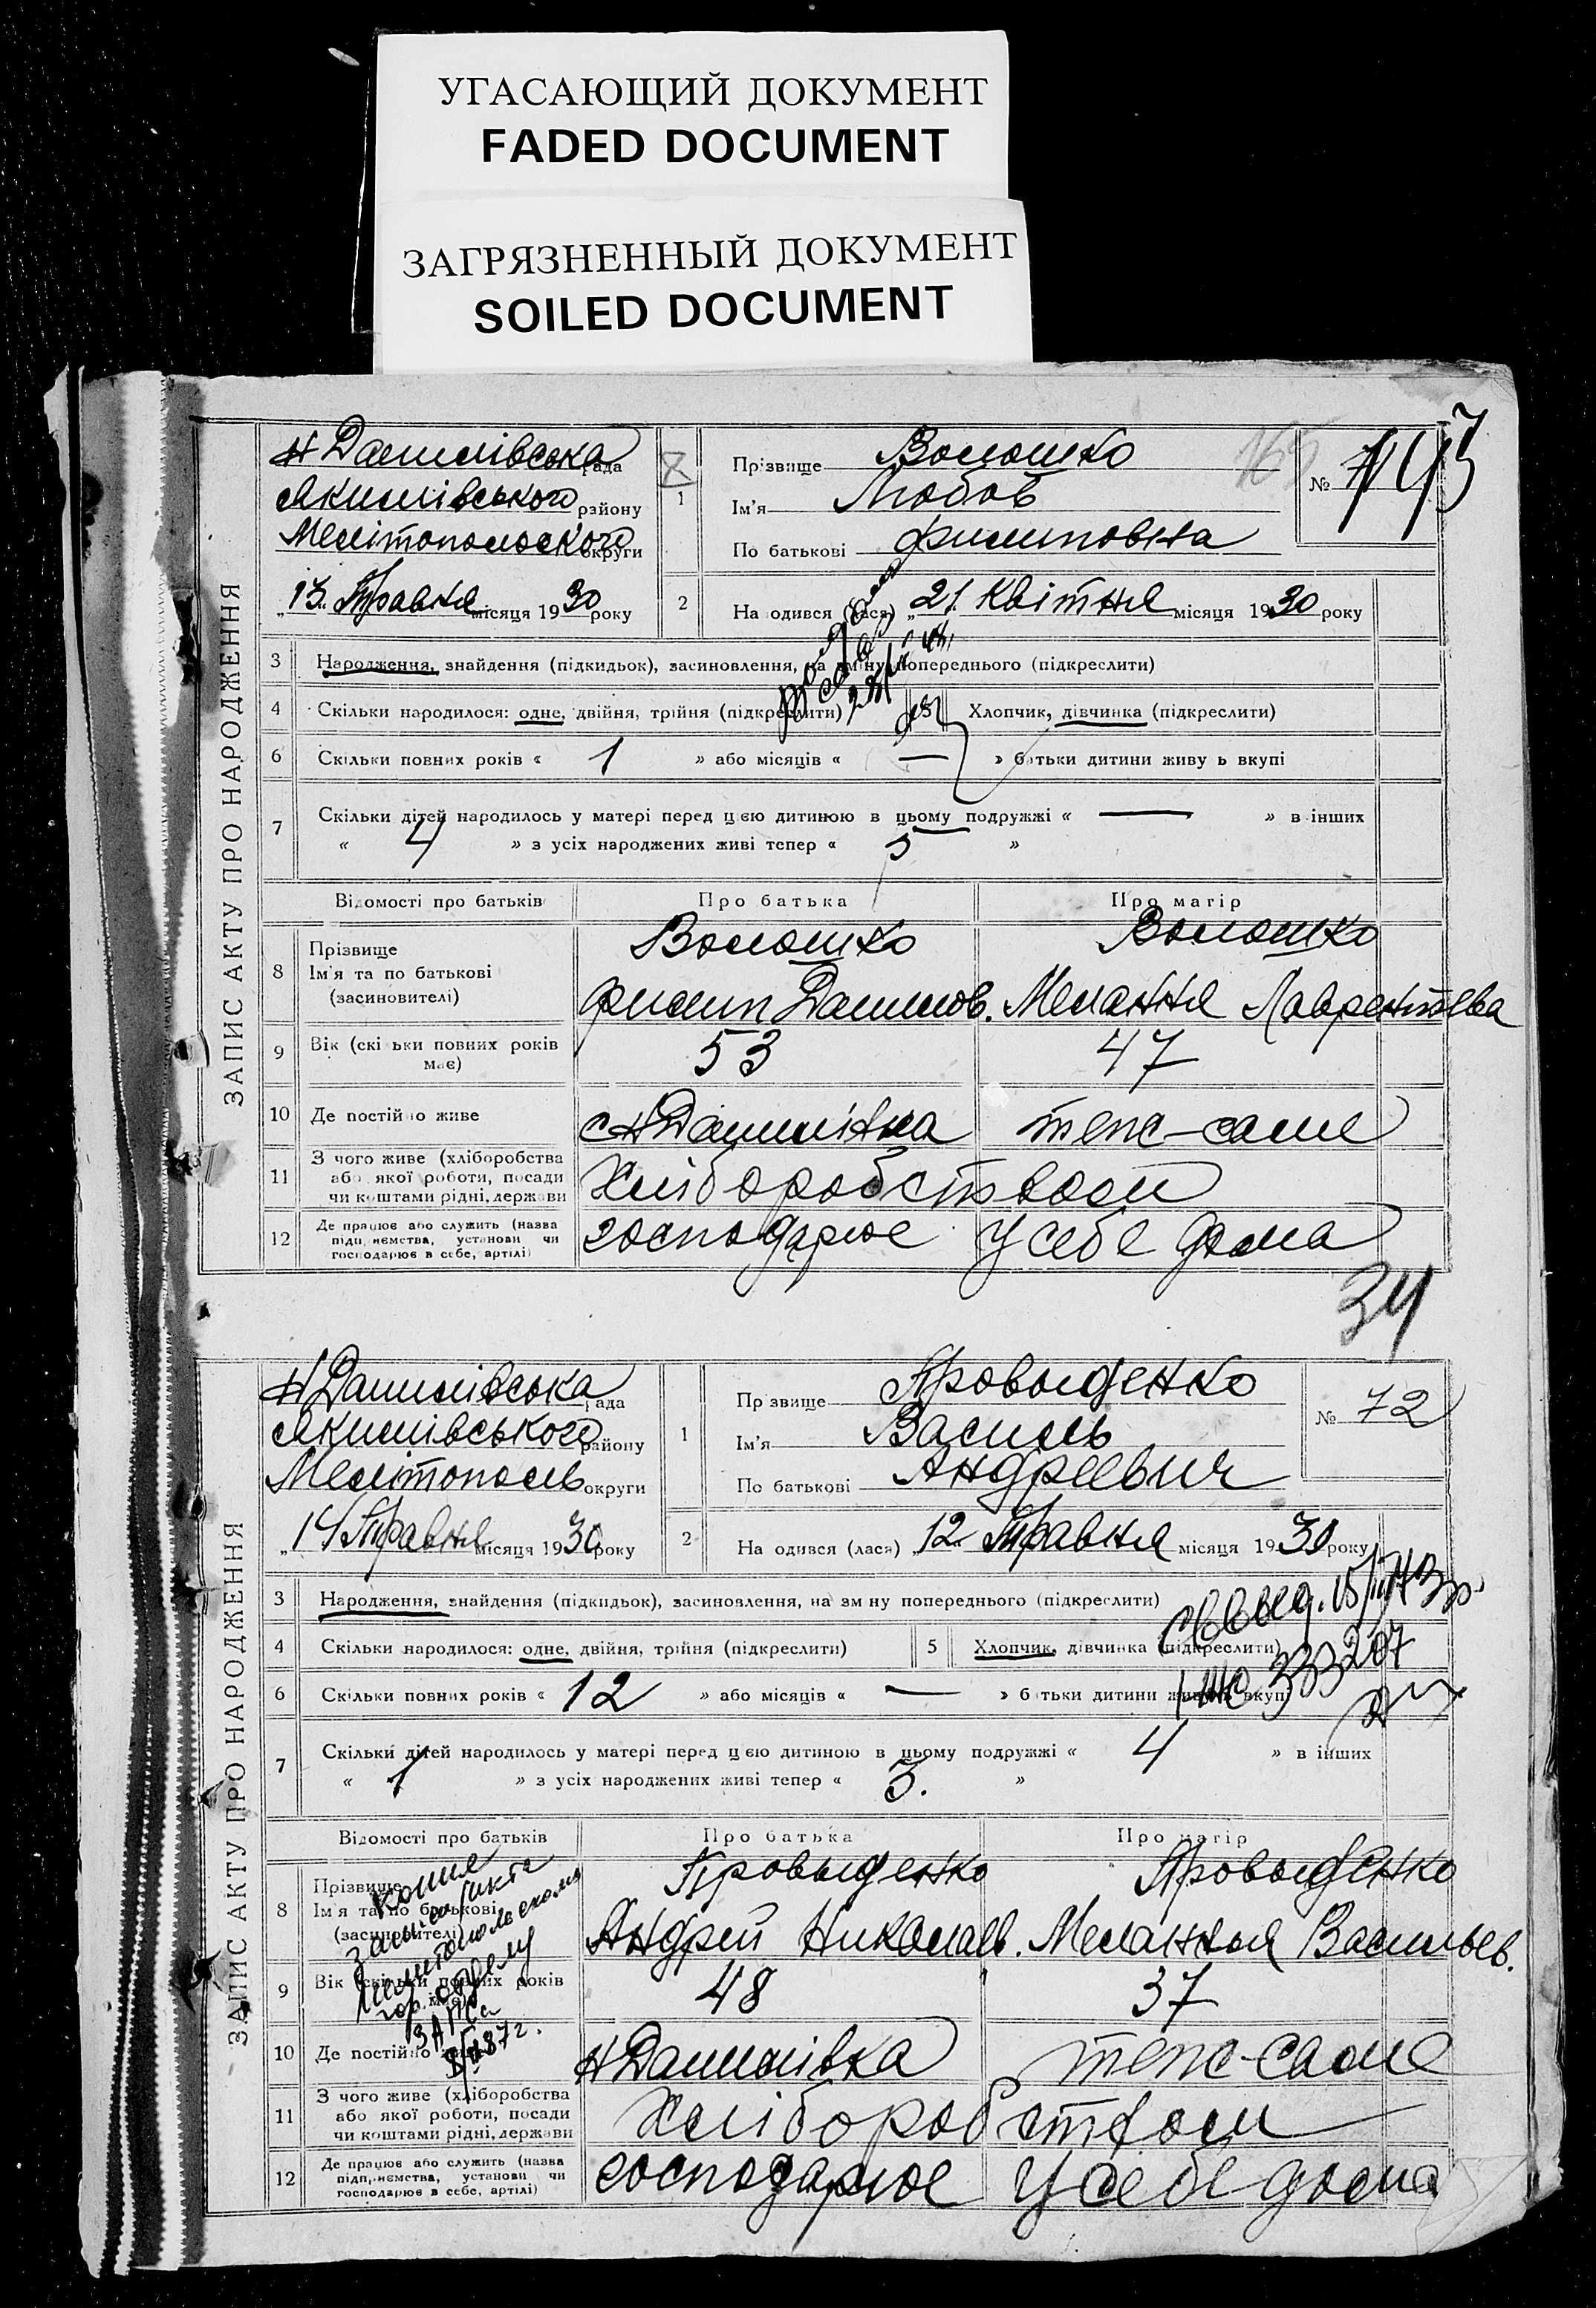 УГАСАЮЩИЙ ДОКУМЕНТ
FADED DOCUMENT
ЗАГРЯЗНЕННЫЙ ДОКУМЕНТ
SOILED DOCUMENT
ЗАПИС АКТУ ПРО НАРОДЖЕННЯ
Н Данилівська рада
Якимівського району
Мелітопольского округи
„13 Травня місяця 1930 року
1 Прізвище Волошко
Ім'я Любов
По батькові Филиповна
№
2 На одився (лася) „21 Квітня місяця 1930 року
3 Народження, знайдення (підкидьок), засиновлення, на зміну попереднього (підкреслити)
4 Скільки народилося: одне, двійня, трійня (підкреслити) 5 Хлопчик, дівчинка (підкреслити)
6 Скільки повних років « 1 » або місяців « — » батьки дитини живу ь вкупі
7 Скільки дітей народилось у матері перед цією дитиною в цьому подружжі « — » в інших
« 4 » з усіх народжених живі тепер « 5 »
Відомості про батьків Про батька Про матір
8 Прізвище Волошко Волошко
Ім'я та по батькові
(засиновителі) Филип Данилов. Мелания Лаврентьева
9 Вік (скі ьки повних років має) 53 47
10 Де постійно живе с Н Данилівка тепс-саме
11 З чого живе (хліборобства
або якої роботи, посади
чи коштами рідні, держави Хліборобством
12 Де працює або служить (назва
підп. иємства, установи чи
господарює в себе, артілі) господарює у себе дома
34
ЗАПИС АКТУ ПРО НАРОДЖЕННЯ
Н Данилівська рада
Якимівського району
Мелітополь округи
„14 Травня місяця 1930 року
1 Пр звище Провыденко
Ім'я Василь
По батькові Андрєєвич
№ 72
2 На одився (лася) „12 Травня місяця 1930 року
3 Народження, знайдення (підкидьок), засиновлення, на зм ну попереднього (підкреслити)
4 Скільки народилося: одне, двійня, трійня (підкреслити) 5 Хлопчик, дівчинка (підкреслити)
6 Скільки повних років « 12 » або місяців « — » б тьки дитини живуть вкупі
7 Скільки дітей народилось у матері перед цією дитиною в цьому подружжі « 4 » в інших
« 1 » з усіх народжених живі тепер « 3. »
Відомості про батьків Про батька Про матір
8 Прізвище Провыденко Провыденко
Ім'я та по батькові
(засиновителі) Андрей Николаев. Меланья Васильев.
9 Вік (скільки повних років має) 48 37
10 Де постійно живе Н Данилівка тепс-саме
11 З чого живе (хліборобства
або якої роботи, посади
чи коштами рідні, держави Хліборобством
12 Де працює або служить (назва
підп. иємства, установи чи
господарює в себе, артілі) господарює у себе дома
333207
Копия